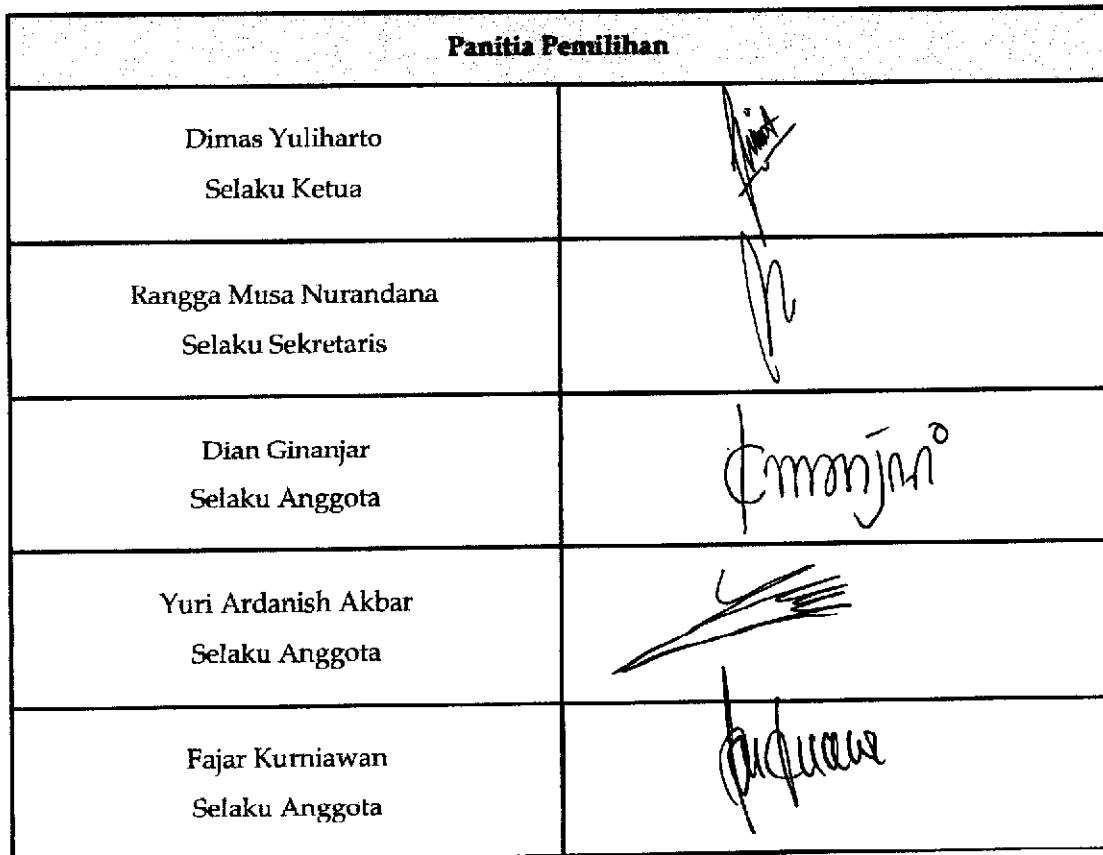 Panitia Pemilihan
Dimas Yuliharto
Selaku Ketua
Rangga Musa Nurandana
Selaku Sekretaris
Dian Ginanjar
Selaku Anggota
Yuri Ardanish Akbar
Selaku Anggota
Fajar Kurniawan
Selaku Anggota